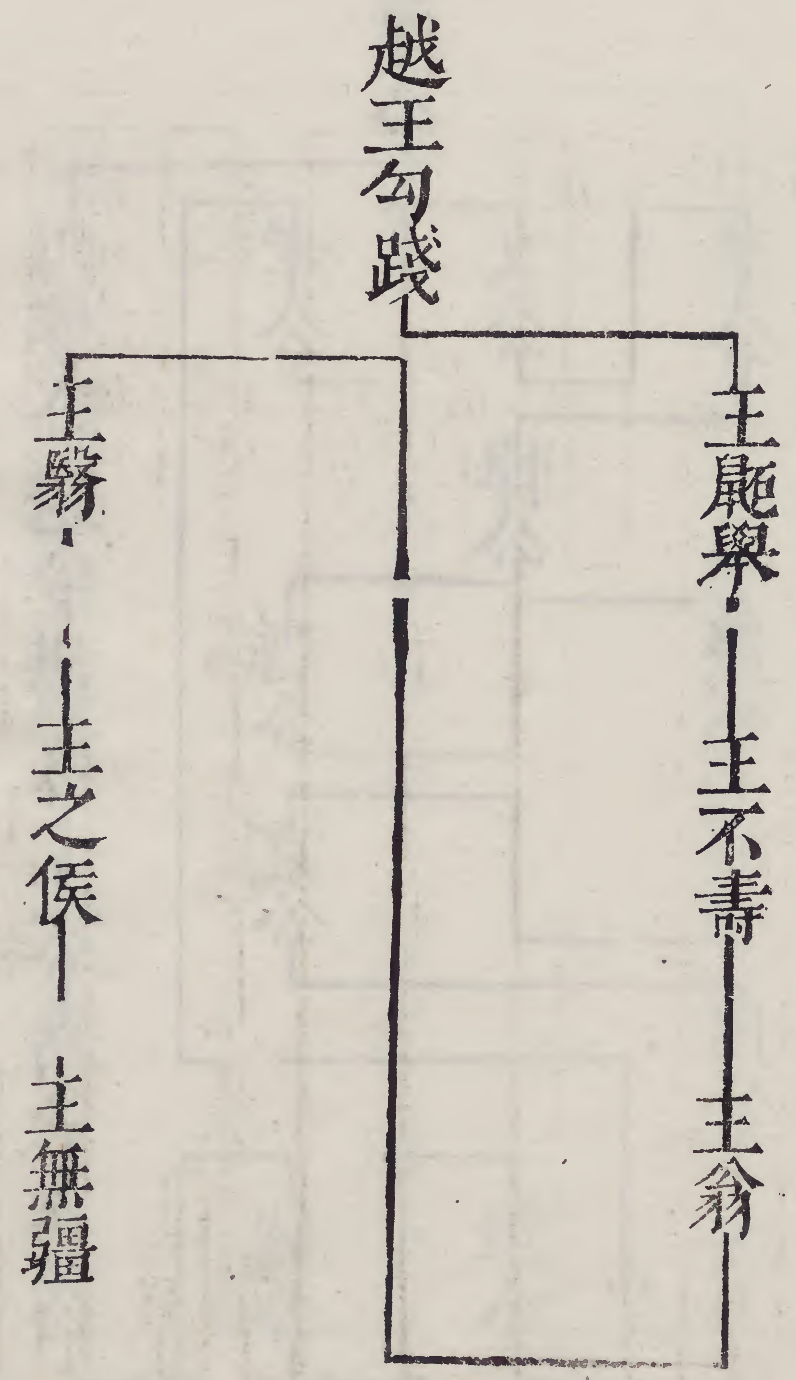 越王勾踐
王鼫舉
王不壽
王翁
王翳
王之侯
王無疆